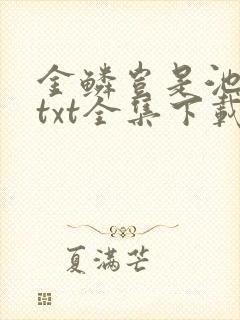 金鳞岂是池
txt全集下载
夏满芒